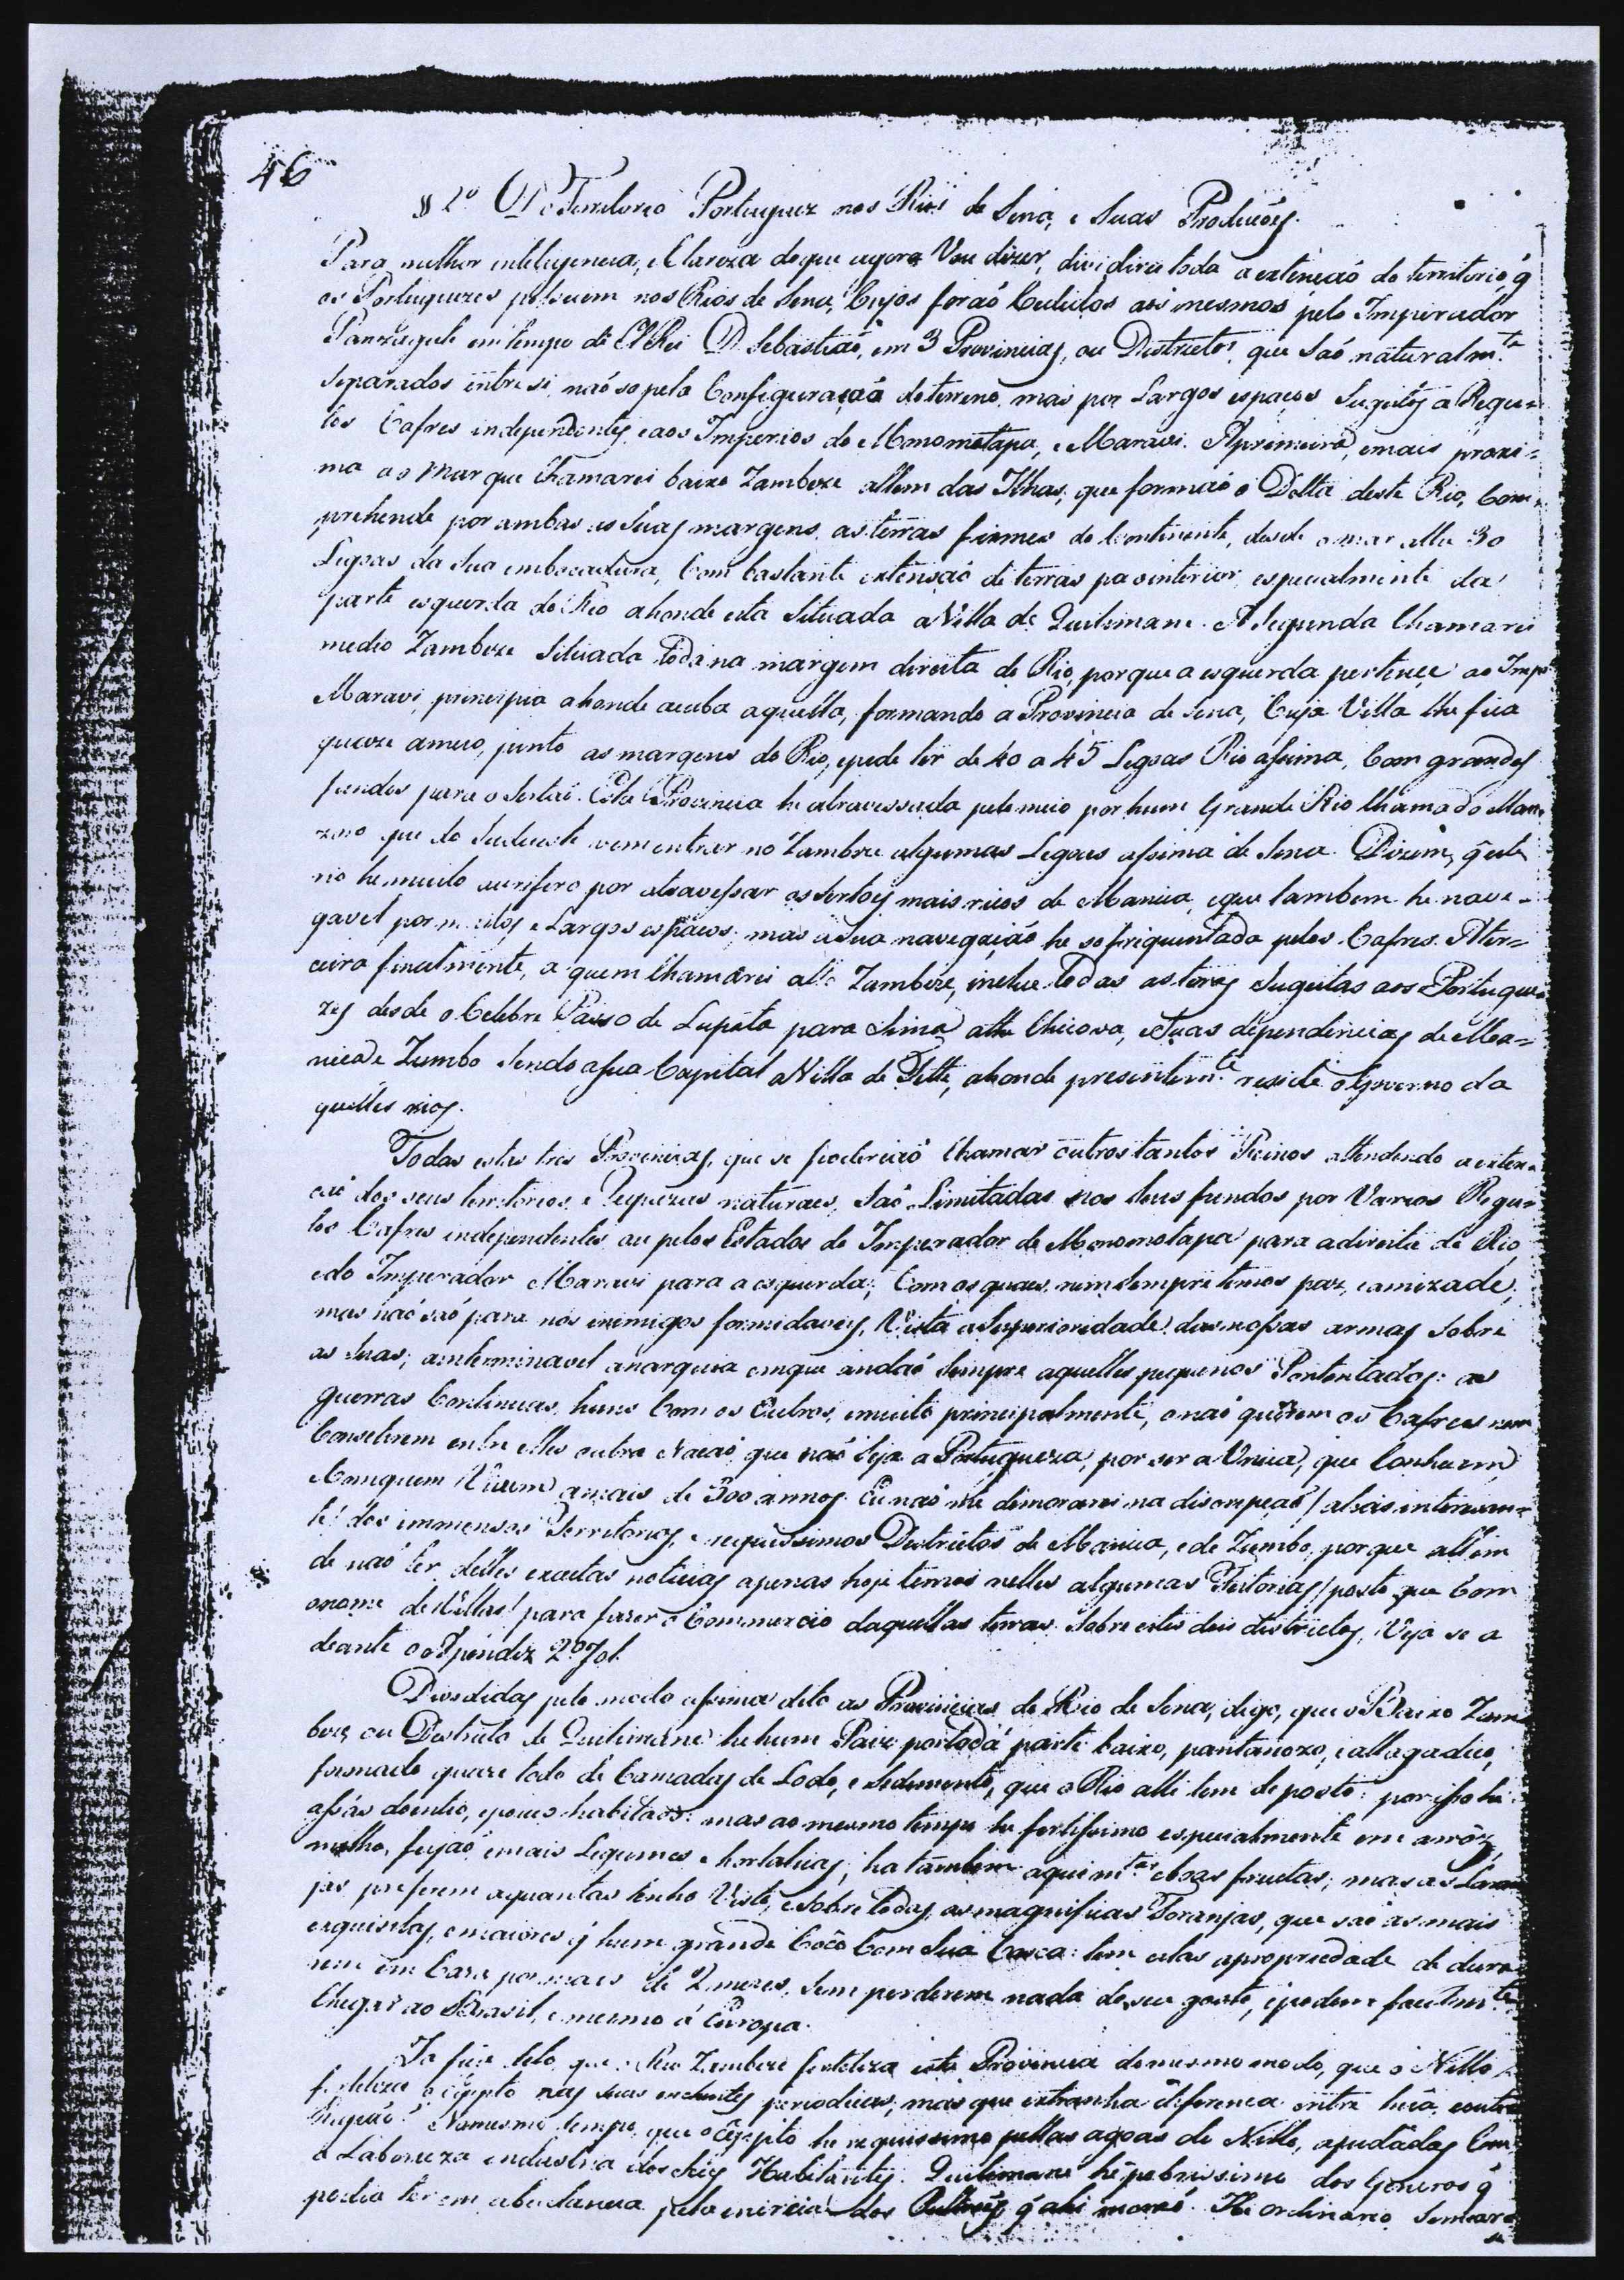 46
§ 2º Do Territorio Portuguez nos Rios de Sena, e Suas Produções.
Para milhor inteligencia, e Clareza do que agora Vou dizer, dividirei toda a extenção do territorio, q̃
os Portuguezes possuem nos Rios de Sena, Cujos forão Cedidos aos mesmos pelo Imperador
em tempo de ElRei D. Sebastião, em 3 Provincias, ou Districtos, que São naturalm.te
Separados entre si, não so pela Configuração do terreno, mas por Largos espaços Sugeitos a Regu=
los Cafres independentes, e aos Imperios do Monomotapa, e Maravi. A primeira, e mais proxi=
ma ao Mar que Chamarei baixo Zambeze allem das Ilhas, que formão o Delta deste Rio, Com=
prehende por ambas as Suas margens, as terras firmes do Continente, desde o mar athe 30
Legoas da Sua embocadura, Com bastante extensão de terras pa o interior, especialmente da
parte esquerda do Rio ahonde esta Situada a Villa de Quilimane. A Segunda Chamarei
medio Zambeze Situada toda na margem direita do Rio, porque a esquerda pertence ao Impº
Maravi, principia ahonde acaba aquella, formando a Provincia de Sena, Cuja Villa lhe fica
quaze a meio, junto as margens do Rio, e pode ter de 40 a 45 Legoas Rio assima, Com grandes
fundos para o Sertão. Esta Provincia he atravessada pelo meio por hum Grande Rio Chamado Man=
zoro que do Sudueste vem entrar no Zambeze algumas Legoas assima de Sena. Dizem, q̃ este
rio he muito aurifero por atravessar os Sertoes mais ricos de Manica, e que tambem he nave=
gavel por muitos e Largos espaços; mas a Sua navegação he so friquentada pelos Cafres. A ter=
ceira finalmente, a quem Chamarei alto Zambeze, inclue todas as terras Sugeitas aos Portugue=
zes desde o Celebre Passo de Lupata para Sima athe Chicova, e Suas dependencias de Ma=
nica e Zumbo Sendo a Sua Capital a Villa de Tette, ahonde presentem.te reside o Governo da
quelles rios.
Todas estas tres Provincias, que se poderião Chamar outros tantos Reinos attendendo a exten=
ção dos seus territorios, e Requezas naturaes, São Limitadas nos Seus fundos por Varios Regu=
los Cafres independentes ou pelos Estados do Imperador de Monomotapa para a direita do Rio,
e do Imperador Maravi para a esquerda; Com os quaes nem Sempre temos paz, e amizade;
mas não são para nos inimigos formidaveis, Vista a Superioridade das nossas armas Sobre
as Suas; a interminavel anarquia em que andão Sempre aquelles pequenos Pontentados: as
guerras Continuas, huns Com os Outros, e muito principalmente, o não quererem os Cafres nem
Consetirem entre elles outra Nação, que não Seja a Portugueza, por ser a Unica, que Conhecem,
e Com quem Vivem a mais de 300 annos. Eu não me dimorarei na discripção / aliás interessan=
te / dos immensos Territorios, e requissimos Districtos de Manica, e de Zumbo, porque allem
de não ter delles exactas noticias, apenas hoje temos nelles algumas Feitorias / posto que Com
o nome de Villas / para fazer o Commercio daquellas terras. Sobre estes dois districtos, Veja se a
deante o Apendix 2º fol.
Divididas pelo modo assima dito as Provincias do Rio de Sena, digo, que o Baixo Zam
beze, ou Districto de Quilimane he hum Paiz por toda parte baixo, pantanozo, e allagadiço,
formado quaze todo de Camadas de Lodo, e Sedimento, que o Rio alli tem deposto: por isso he
assás doentio, e pouco habitado: mas ao mesmo tempo he fertilissimo especialmente em arroz,
milho, feijão, e mais Legumes e hortaliças; ha tambem aqui m.tas e boas fructas; mas as Laran
jas preferem a quantas tenho Visto, e sobre todas, as magnificas Toranjas, que são as mais
exquisitas, e maiores q̃ hum grande Côco Com Sua Casca: tem estas a propriedade de dura
rem em Caza por mais de 2 mezes, Sem perderem nada do seu gosto, e podem facilm.te
Chegar ao Brasil, e mesmo á Europa.
Ja fica dito, que o Rio Zambeze fertiliza esta Provincia do mesmo modo, que o Nillo
fertiliza o Egypto nas suas enchentes periodicas; mas que extranha diferenca entre huã, e outra
No mesmo tempo, que o Egypto he requissimo pellas agoas do Nillo, ajudadas Com
a Laborioza industria dos Seus Habitantes. Quilimane he pobrissimo dos Generos q̃
podia ter em abundancia pela inercia dos q̃ ahi morão. He ordinario Semear